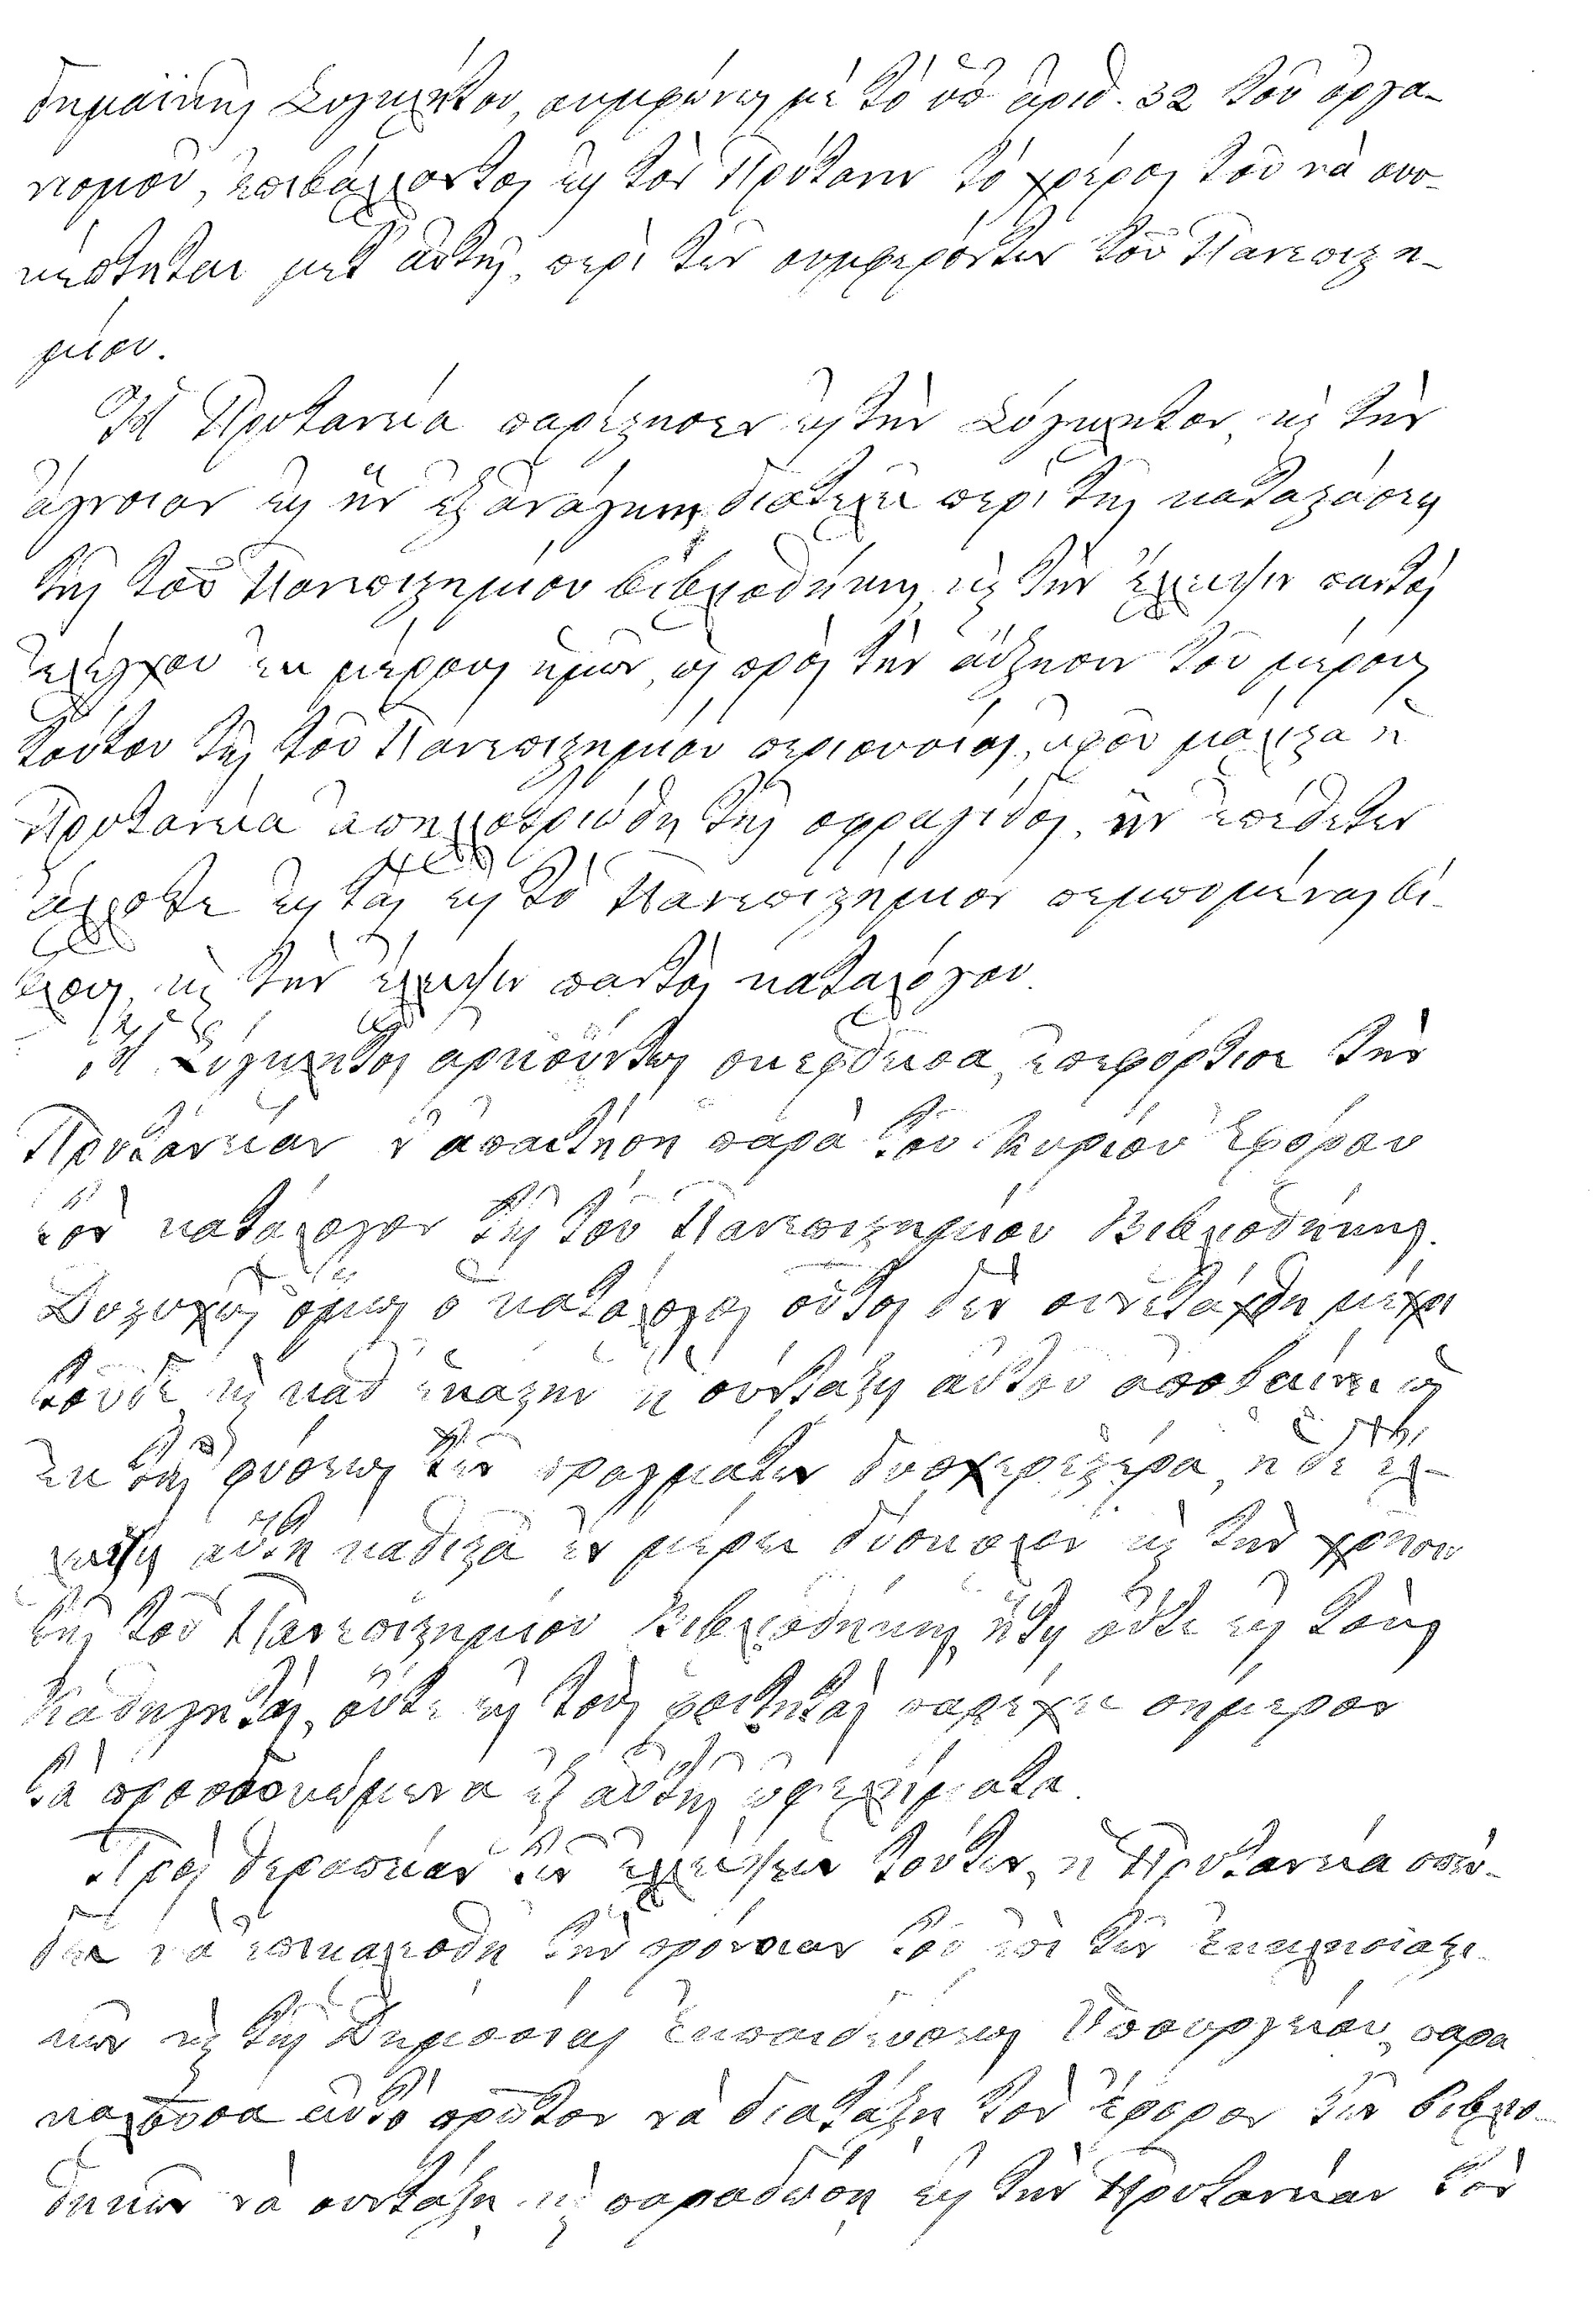 δημαϊκῆς Συγκλήτου, συμφώνως μὲ τὸ ὑπ' ἀριθ. 32 τοῦ ὀργα-
νισμοῦ, ἐπιβάλλοντος εἰς τὸν Πρύτανιν τὸ χρέος τοῦ νὰ συσ-
κέπτηται μετ' αὐτῆς, περὶ τῶν συμφερόντων τοῦ Πανεπιστη-
μίου.
Ἡ Πρυτανεία παρέστησεν εἰς τὴν Σύγκλητον καὶ τὴν
ἄγνοιαν εἰς ἣν ἐξ ἀνάγκης διατελεῖ περὶ τῆς καταστάσεως
τῆς τοῦ Πανεπιστημίου βιβλιοθήκης, καὶ τὴν ἔλλειψιν παντὸς
ἐλέγχου ἐκ μέρους ἡμῶν, ὡς πρὸς τὴν αὔξησιν τοῦ μέρους
τούτου τῆς τοῦ Πανεπιστημίου περιουσίας, ἀφοῦ μάλιστα ἡ
Πρυτανεία ἀπηλλοτριώθη τῆς σφραγίδος, ἣν ἐπέθετεν
ἄλλοτε εἰς τὰς εἰς τὸ Πανεπιστήμιον πεμπομένας βί-
βλους, καὶ τὴν ἔλλειψιν παντὸς καταλόγου.
Ἡ Σύγκλητος ἀρκούντως σκεφθεῖσα, ἐπεφόρτισε τὴν
Πρυτανείαν ν' ἀπαιτήσῃ παρὰ τοῦ Κυρίου Ἐφόρου
τὸν κατάλογον τῆς τοῦ Πανεπιστημίου Βιβλιοθήκης.
Δυστυχῶς ὅμως ὁ κατάλογος οὗτος δὲν συνετάχθη μέχρι
τοῦδε καὶ καθ' ἑκάστην ἡ σύνταξις αὐτοῦ ἀποβαίνει ὡς
ἐκ τῆς φύσεως τῶν πραγμάτων δυσχερεστέρα, ἡ δὲ ἔλ-
λειψις αὐτὴ καθιστᾶ ἐν μέρει δύσκολον καὶ τὴν χρῆσιν
τῆς τοῦ Πανεπιστημίου Βιβλιοθήκης, ἥτις οὔτε εἰς τοὺς
Καθηγητάς, οὔτε εἰς τοὺς φοιτητὰς παρέχει σήμερον
τὰ προσδοκώμενα ἐξ αὐτῆς ὠφελήματα.
Πρὸς θεραπείαν τῶν ἐλλείψεων τούτων, ἡ Πρυτανεία σπεύ-
δει νὰ ἐπικαλεσθῇ τὴν πρόνοιαν τοῦ ἐπὶ τῶν Ἐκκλησιαστι-
κῶν καὶ τῆς Δημοσίας Ἐκπαιδεύσεως Ὑπουργείου, παρα
καλοῦσα αὐτὸ πρῶτον νὰ διατάξῃ τὸν Ἔφορον τῶν βιβλιο-
θηκῶν νὰ συντάξῃ καὶ παραδώσῃ εἰς τὴν Πρυτανείαν τὸν